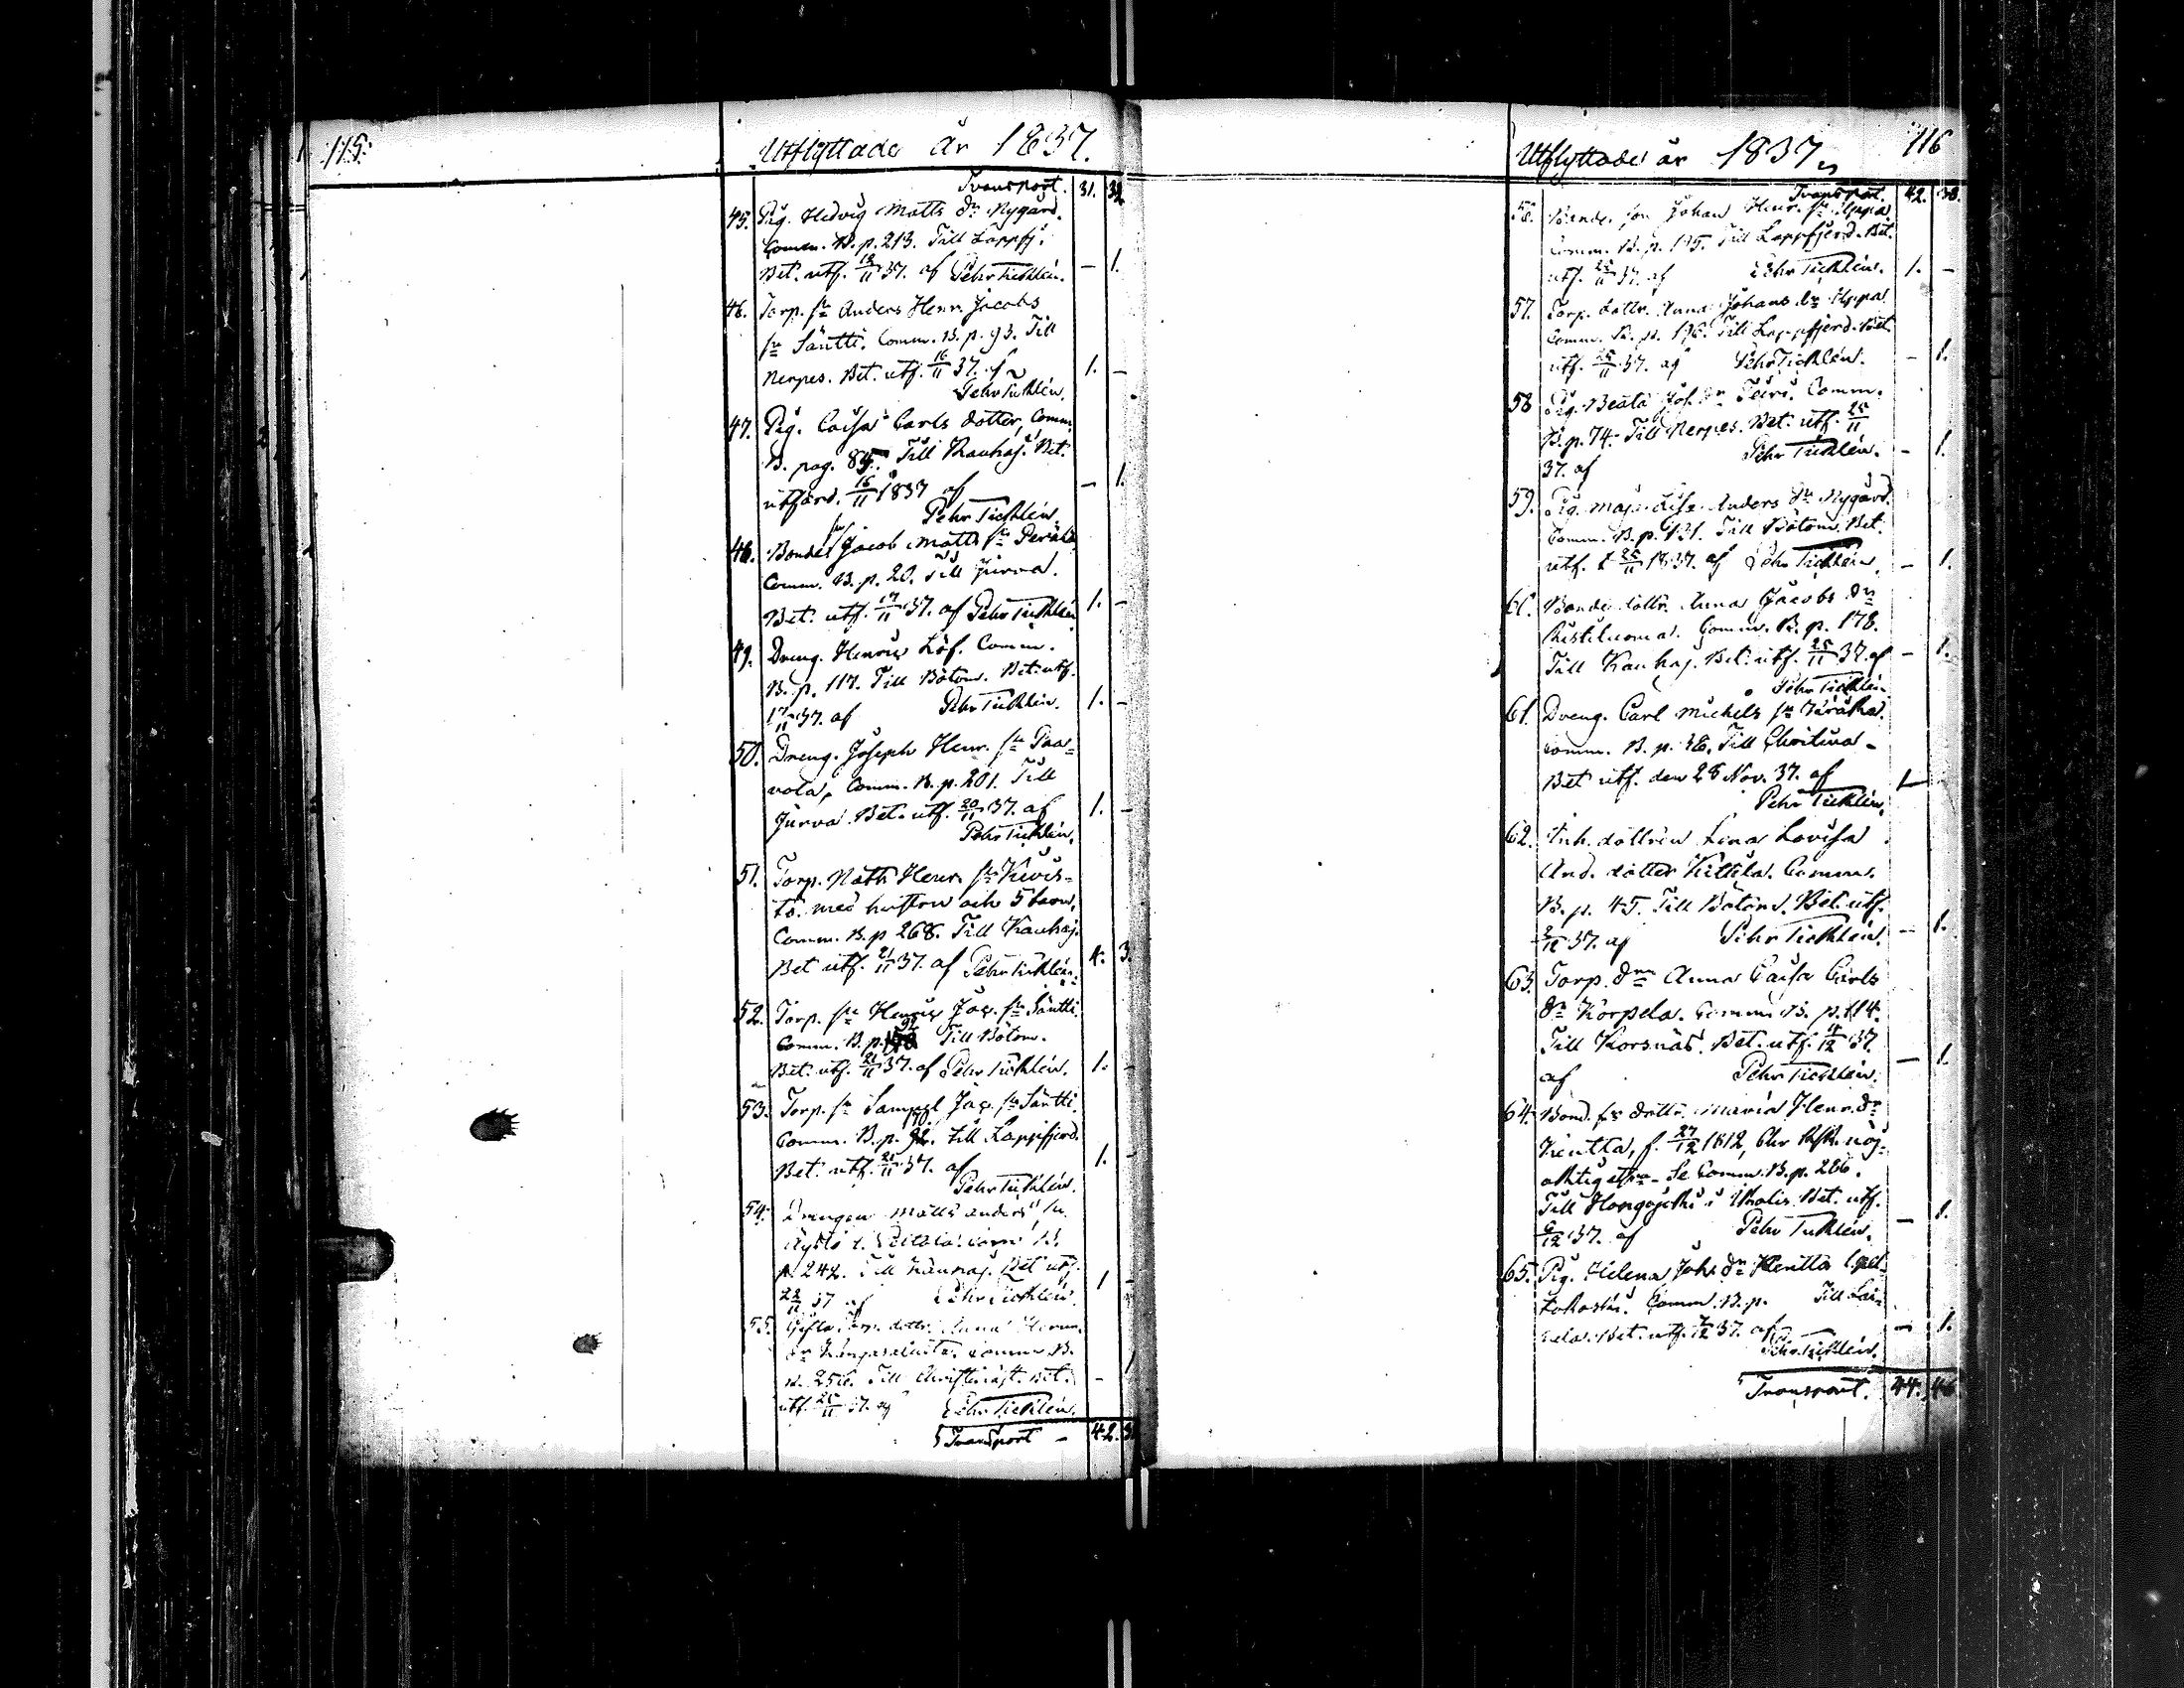 115.
Utflyttade År 1837.
Transport. 31. 32.
45. Pig. Hedvig Matts dr Nygård.
Comm. B. p. 213. Till Lappfj.
Bet. utf. 18/11 37. af Pehr Tichlén. – 1.
46. Torp. sn Anders Henr. Jacobs
sn Säntti. Comm. B. p. 93. Till
Nerpes. Bet. utf. 16/11 37. af 1. –
Pehr Tichlén.
47. Pig. Caisa Carls dotter, Comm.
B. pag. 85. Till Kauhaj. Bet.
utfärd. 16/11 1837 af – 1.
Pehr Tichlén.
48. Bondes Jacob Matts sn Perälä
Comm. B. p. 20. Till Jurva.
Bet. utf. 17/11 37. af Pehr Tichlén 1. –
49. Dreng. Henric Löf. Comm.
B. p. 117. Till Bötom. Bet. utf.
17/11 37. af Pehr Tichlén. 1. –
50. Dreng. Joseph Henr. sn Paa-
vola, Comm. B. p. 201. Till
Jurva. Bet. utf. 20/11 37. af 1. –
Pehr Tichlén.
51. Torp. Matts Henr. sn Kivis-
tö. med hustru och 5 barn,
Comm. B. p 268. Till Kauhaj.
Bet utf. 21/11 37. af Pehr Tichlén. 4. 3.
52. Torp. sn Henric Jac. sn Säntti.
Comm. B. p. 92 Till Bötom.
Bet. utf. 21/11 37. af Pehr Tichlén. 1. –
53. Torp. sn Samuel Jac. sn Säntti
Comm. B. p. 92. till Lappfjerd.
Bet. utf. 21/11 37. af 1. –
Pehr Tichlén.
54. Drengen Matts Anders sn
p. 242. Till Kauhaj. Bet utf.
22/11 37 af Pehr Tichlén. 1 –
55. Torp. dottr. Anna
Comm. B.
p. 256. Till Bet. – 1
utf. 25/11 37. af Pehr Tichlén.
Transport – 42.
116
Utflyttade år 1837
Transport. 42. 38.
56. Bonde son Johan Henr. sn Uppa
Comm. B. p. 195. Till Lappfjerd. Bet.
utf. 25/11 37. af Pehr Tichlén. 1. –
57. Torp. dottr. Anna Johans dr Uppa
Comm. B. p. 196. Till Lappfjerd. Bet.
utf. 25/11 37. af Pehr Tichlén. – 1.
58 Pig. Beata Joh. dr Comm.
B. p. 74. Till Nerpes. Bet. utf. 25/11
37. af Pehr Tichlén. – 1.
59. Pig. Maja Lisa Anders dr Nygård.
Comm. B. p. 121. Till Bötom. Bet.
utf. d 25/11 1837. af Pehr Tichlén. – 1.
60. Bonde dottr. Anna Jacobs dr
Ristiluoma. Comm. B. p. 178.
Till Kauhaj. Bet. utf. 25/11 37. af – 1.
Pehr Tichlén.
61. Dreng. Carl Michels sn
Comm. B. p. 38. Till Christina-
Bet utf. den 28 Nov. 37. af 1 –
Pehr Tichlén.
62. Inh. dottren Lena Lovisa
And. dotter Kittila. Comm.
B. p. 45. Till Bötom. Bet. utf.
2/12 37. af Pehr Tichlén. – 1.
63. Torp. dr Anna Caisa Carls
dr Korpela. Comm. B. p. 114.
Till Korsnäs. Bet. utf. 4/12 37.
af Pehr Tichlén. – 1.
64. Bond. dottr. Maria Henr. dr
Kentta, f. 27/12 1812,
Se Comm. B. p. 286.
Till Hongojoki i Ulvila. Bet. utf.
6/12 37. af Pehr Tichlén. – 1.
65. Pig. Helena Joh. dr Hentta
Comm. B. p. Till Lai-
hela. Bet. utf. 7/12 37. af – 1.
Pehr Tichlén.
Transport. 44. 46